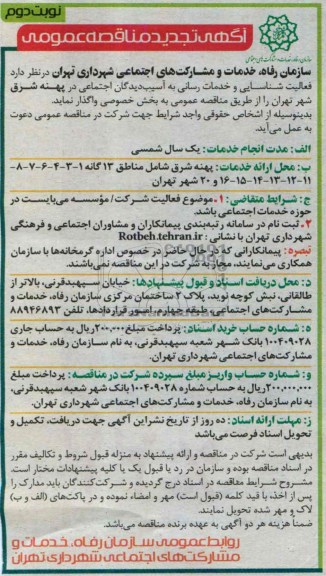 نوبت دوم
آگهی تجدید مناقصه عمومی
سازمان رفاه، خدمات و مشارکت‌های اجتماعی شهرداری تهران درنظر دارد
فعالیت شناسایی و خدمات رسانی به آسیب‌دیدگان اجتماعی در پهنه شرق
شهر تهران را از طریق مناقصه عمومی به بخش خصوصی واگذار نماید.
بدینوسیله از اشخاص حقوقی واجد شرایط جهت شرکت در مناقصه عمومی دعوت
به عمل می‌آید.
الف: مدت انجام خدمات: یک سال شمسی
ب: محل ارائه خدمات: پهنه شرق شامل مناطق ۱۳ گانه ۱-۳-۴-۶-۷-۸-
۱۱-۱۲-۱۳-۱۴-۱۵-۱۶ و ۲۰ شهر تهران
ج: شرایط متقاضی: ۱. موضوع فعالیت شرکت/ مؤسسه می‌بایست در
حوزه خدمات اجتماعی باشد.
۲. ثبت نام در سامانه رتبه‌بندی پیمانکاران و مشاوران اجتماعی و فرهنگی
شهرداری تهران با نشانی: Rotbeh.tehran.ir
تبصره: پیمانکارانی که در حال حاضر در خصوص اداره گرمخانه‌ها با سازمان
همکاری می‌نمایند، مجاز به شرکت در این مناقصه نمی‌باشند.
د: محل دریافت اسناد و قبول پیشنهادها: خیابان سپهبدقرنی، بالاتر از
طالقانی، نبش کوچه نوید، پلاک ۲ ساختمان مرکزی سازمان رفاه، خدمات و
مشارکت‌های اجتماعی، طبقه چهارم، امور قراردادها، تلفن ۸۸۹۴۶۸۹۳
ه: شماره حساب خرید اسناد: پرداخت مبلغ ۲۰۰,۰۰۰ ریال به حساب جاری
۱۰۰۴۰۹۰۲۸ بانک شهر شعبه سپهبدقرنی، به نام سازمان رفاه، خدمات و
مشارکت‌های اجتماعی شهرداری تهران.
و: شماره حساب واریز مبلغ سپرده شرکت در مناقصه: پرداخت مبلغ
۲۰۰,۰۰۰,۰۰۰ ریال به حساب شماره ۱۰۰۴۰۹۰۲۸ بانک شهر شعبه سپهبدقرنی،
به نام سازمان رفاه، خدمات و مشارکت‌های اجتماعی شهرداری تهران.
ز: مهلت ارائه اسناد: ده روز از تاریخ نشر این آگهی جهت دریافت، تکمیل و
تحویل اسناد فرصت می‌باشد
بدیهی است شرکت در مناقصه و ارائه پیشنهاد به منزله قبول شروط و تکالیف مقرر
در اسناد مناقصه بوده و سازمان در رد یا قبول یک یا کلیه پیشنهادات مختار است.
مشروح شرایط مناقصه در اسناد درج گردیده و شرکت‌کنندگان باید مدارک را
پس از اخذ، با قید کلمه (قبول است) مهر و امضاء نموده و در پاکت‌های (الف و ب)
لاک و مهر شده تحویل نمایند.
ضمنا هزینه هر دو آگهی به عهده برنده مناقصه می‌باشد.
روابط عمومی سازمان رفاه، خدمات و
مشارکت‌های اجتماعی شهرداری تهران